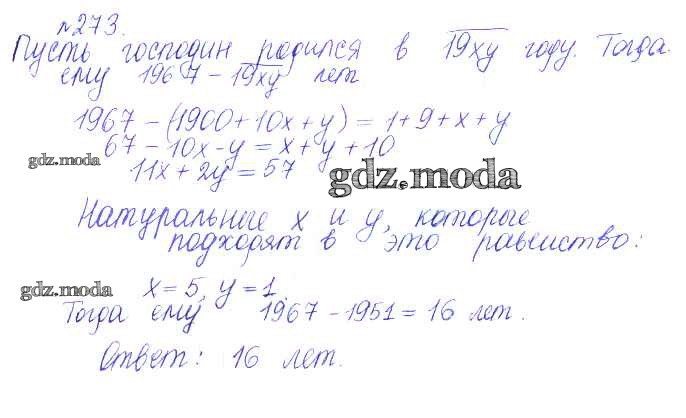 №273.
Пусть господин родился в 19xy году. Тогда
ему 1967 - 19xy лет
1967 - (1900 + 10x + y) = 1 + 9 + x + y
67 - 10x - y = x + y + 10
gdz.moda
11x + 2y = 57
gdz.moda
Натуральные x и y, которые
подходят в это равенство:
gdz.moda
x = 5, y = 1.
Тогда ему 1967 - 1951 = 16 лет.
Ответ: 16 лет.